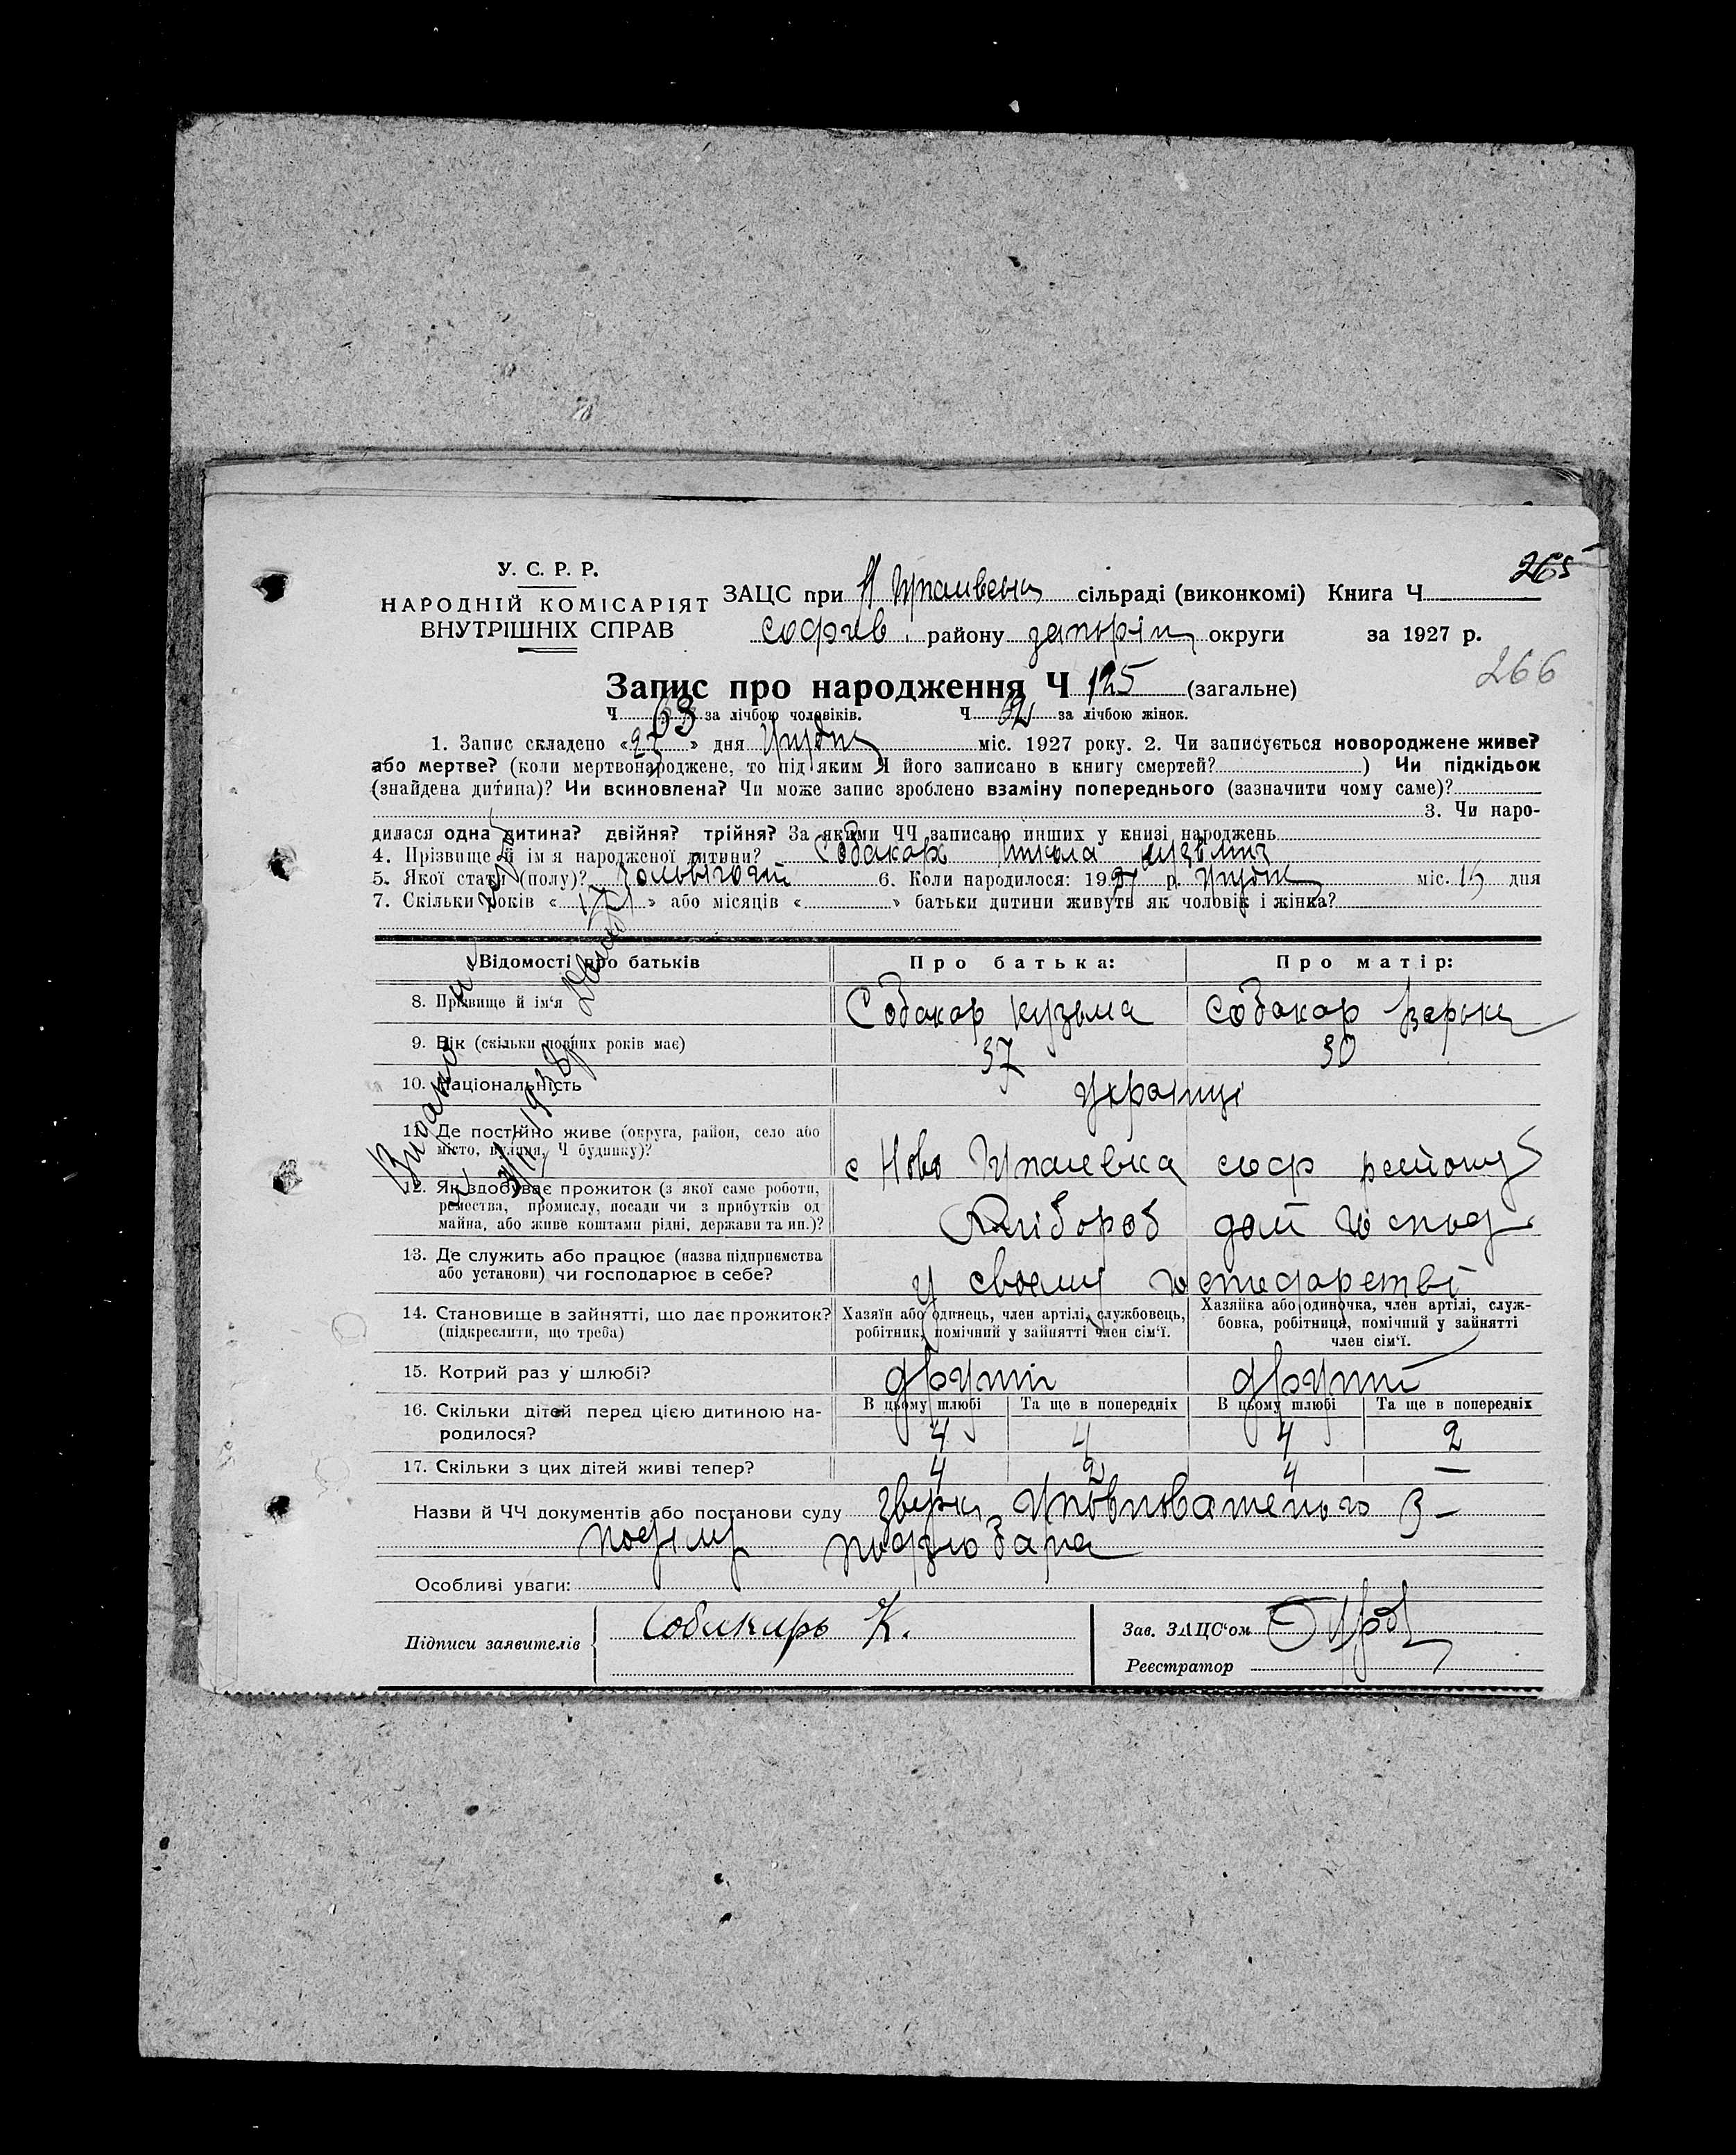 265
У. С. Р. Р.
НАРОДНІЙ КОМІСАРІЯТ
ВНУТРІШНІХ СПРАВ
ЗАЦС при сільраді (виконкомі) Книга Ч
софіїв. району запоріж округи за 1927 р.
266
Запис про народження Ч 125 (загальне)
Ч 63 за лічбою чоловіків. Ч 62 за лічбою жінок.
1. Запис складено «27» дня Грудня міс. 1927 року. 2. Чи записується новороджене живе?
або мертве? (коли мертвонароджене, то під яким Ч його записано в книгу смертей? ) Чи підкідьок
(знайдена дитина)? Чи всиновлена? Чи може запис зроблено взаміну попереднього (зазначити чому саме)?
3. Чи наро-
дилася одна дитина? двійня? трійня? За якими ЧЧ записано инших у книзі народжень
4. Прізвище й ім'я народженої дитини? Собакар Микола
5. Якої статі (полу)? 6. Коли народилося: 1927 р. Грудня міс. 15 дня
7. Скільки років « » або місяців « » батьки дитини живуть як чоловік і жінка?
Відомості про батьків Про батька: Про матір:
8. Прізвище й ім'я Собакар Кузьма Собакар Варька
9. Вік (скільки повних років має) 37 30
10. Національність Українці
11. Де постійно живе (округа, район, село або
місто, вулиця, Ч будинку)? с Ново соф району
12. Як здобуває прожиток (з якої саме роботи,
ремества, промислу, посади чи з прибутків од
майна, або живе коштами рідні, держави та ин.)? Хлібороб дом господ
13. Де служить або працює (назва підприємства
або установи) чи господарює в себе? у своєму господарстві
14. Становище в зайнятті, що дає прожиток?
(підкреслити, що треба)
Хазяїн або одинець, член артілі, службовець,
робітник, помічний у зайнятті член сім'ї.
Хазяйка або одиночка, член артілі, служ-
бовка, робітниця, помічний у зайнятті
член сім'ї.
15. Котрий раз у шлюбі? другий другий
16. Скільки дітей перед цією дитиною на-
родилося?
В цьому шлюбі Та ще в попередніх В цьому шлюбі Та ще в попередніх
4 4 4 2
17. Скільки з цих дітей живі тепер? 4 2 4 —
Назви й ЧЧ документів або постанови суду
Особливі уваги:
Підписи заявителів Собакарь К.
Зав. ЗАЦС'ом
Реєстратор